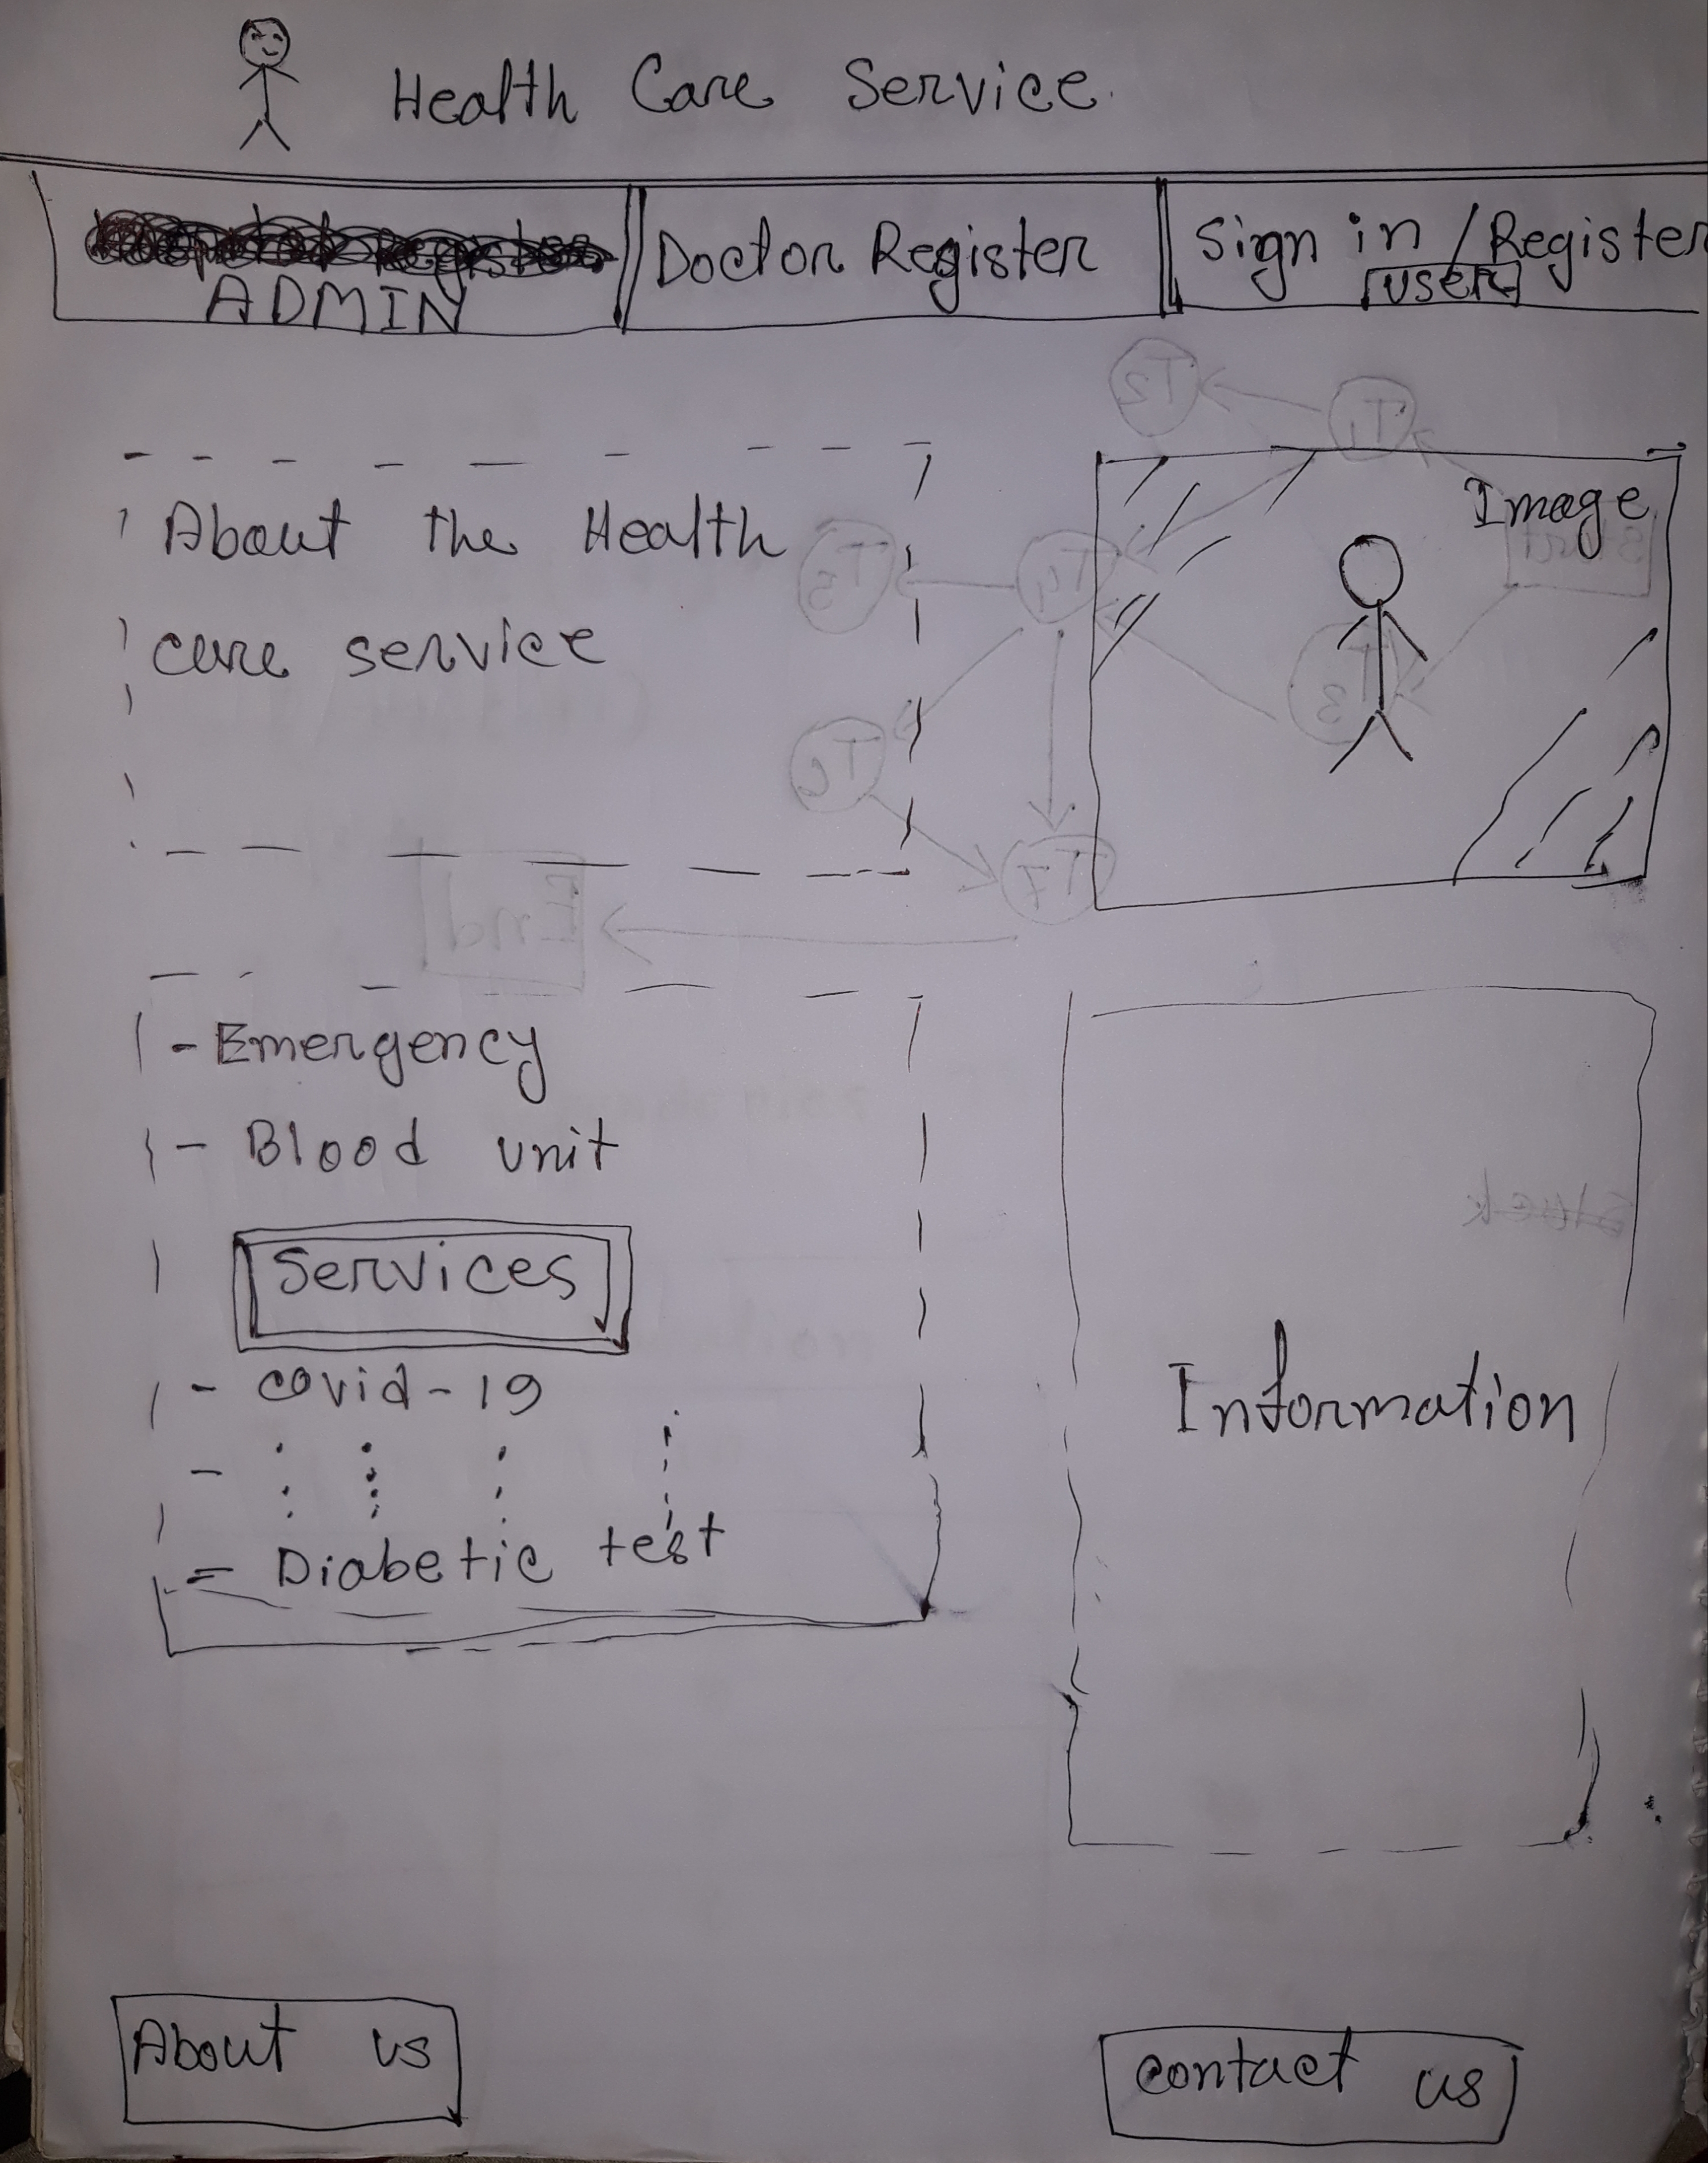 Health Care Service
ADMIN
Doctor Register
Sign in / Register
USER
Image
About the Health
care service
- Emergency
- Blood unit
Services
- covid-19
-
= Diabetic test
Information
About us
contact us